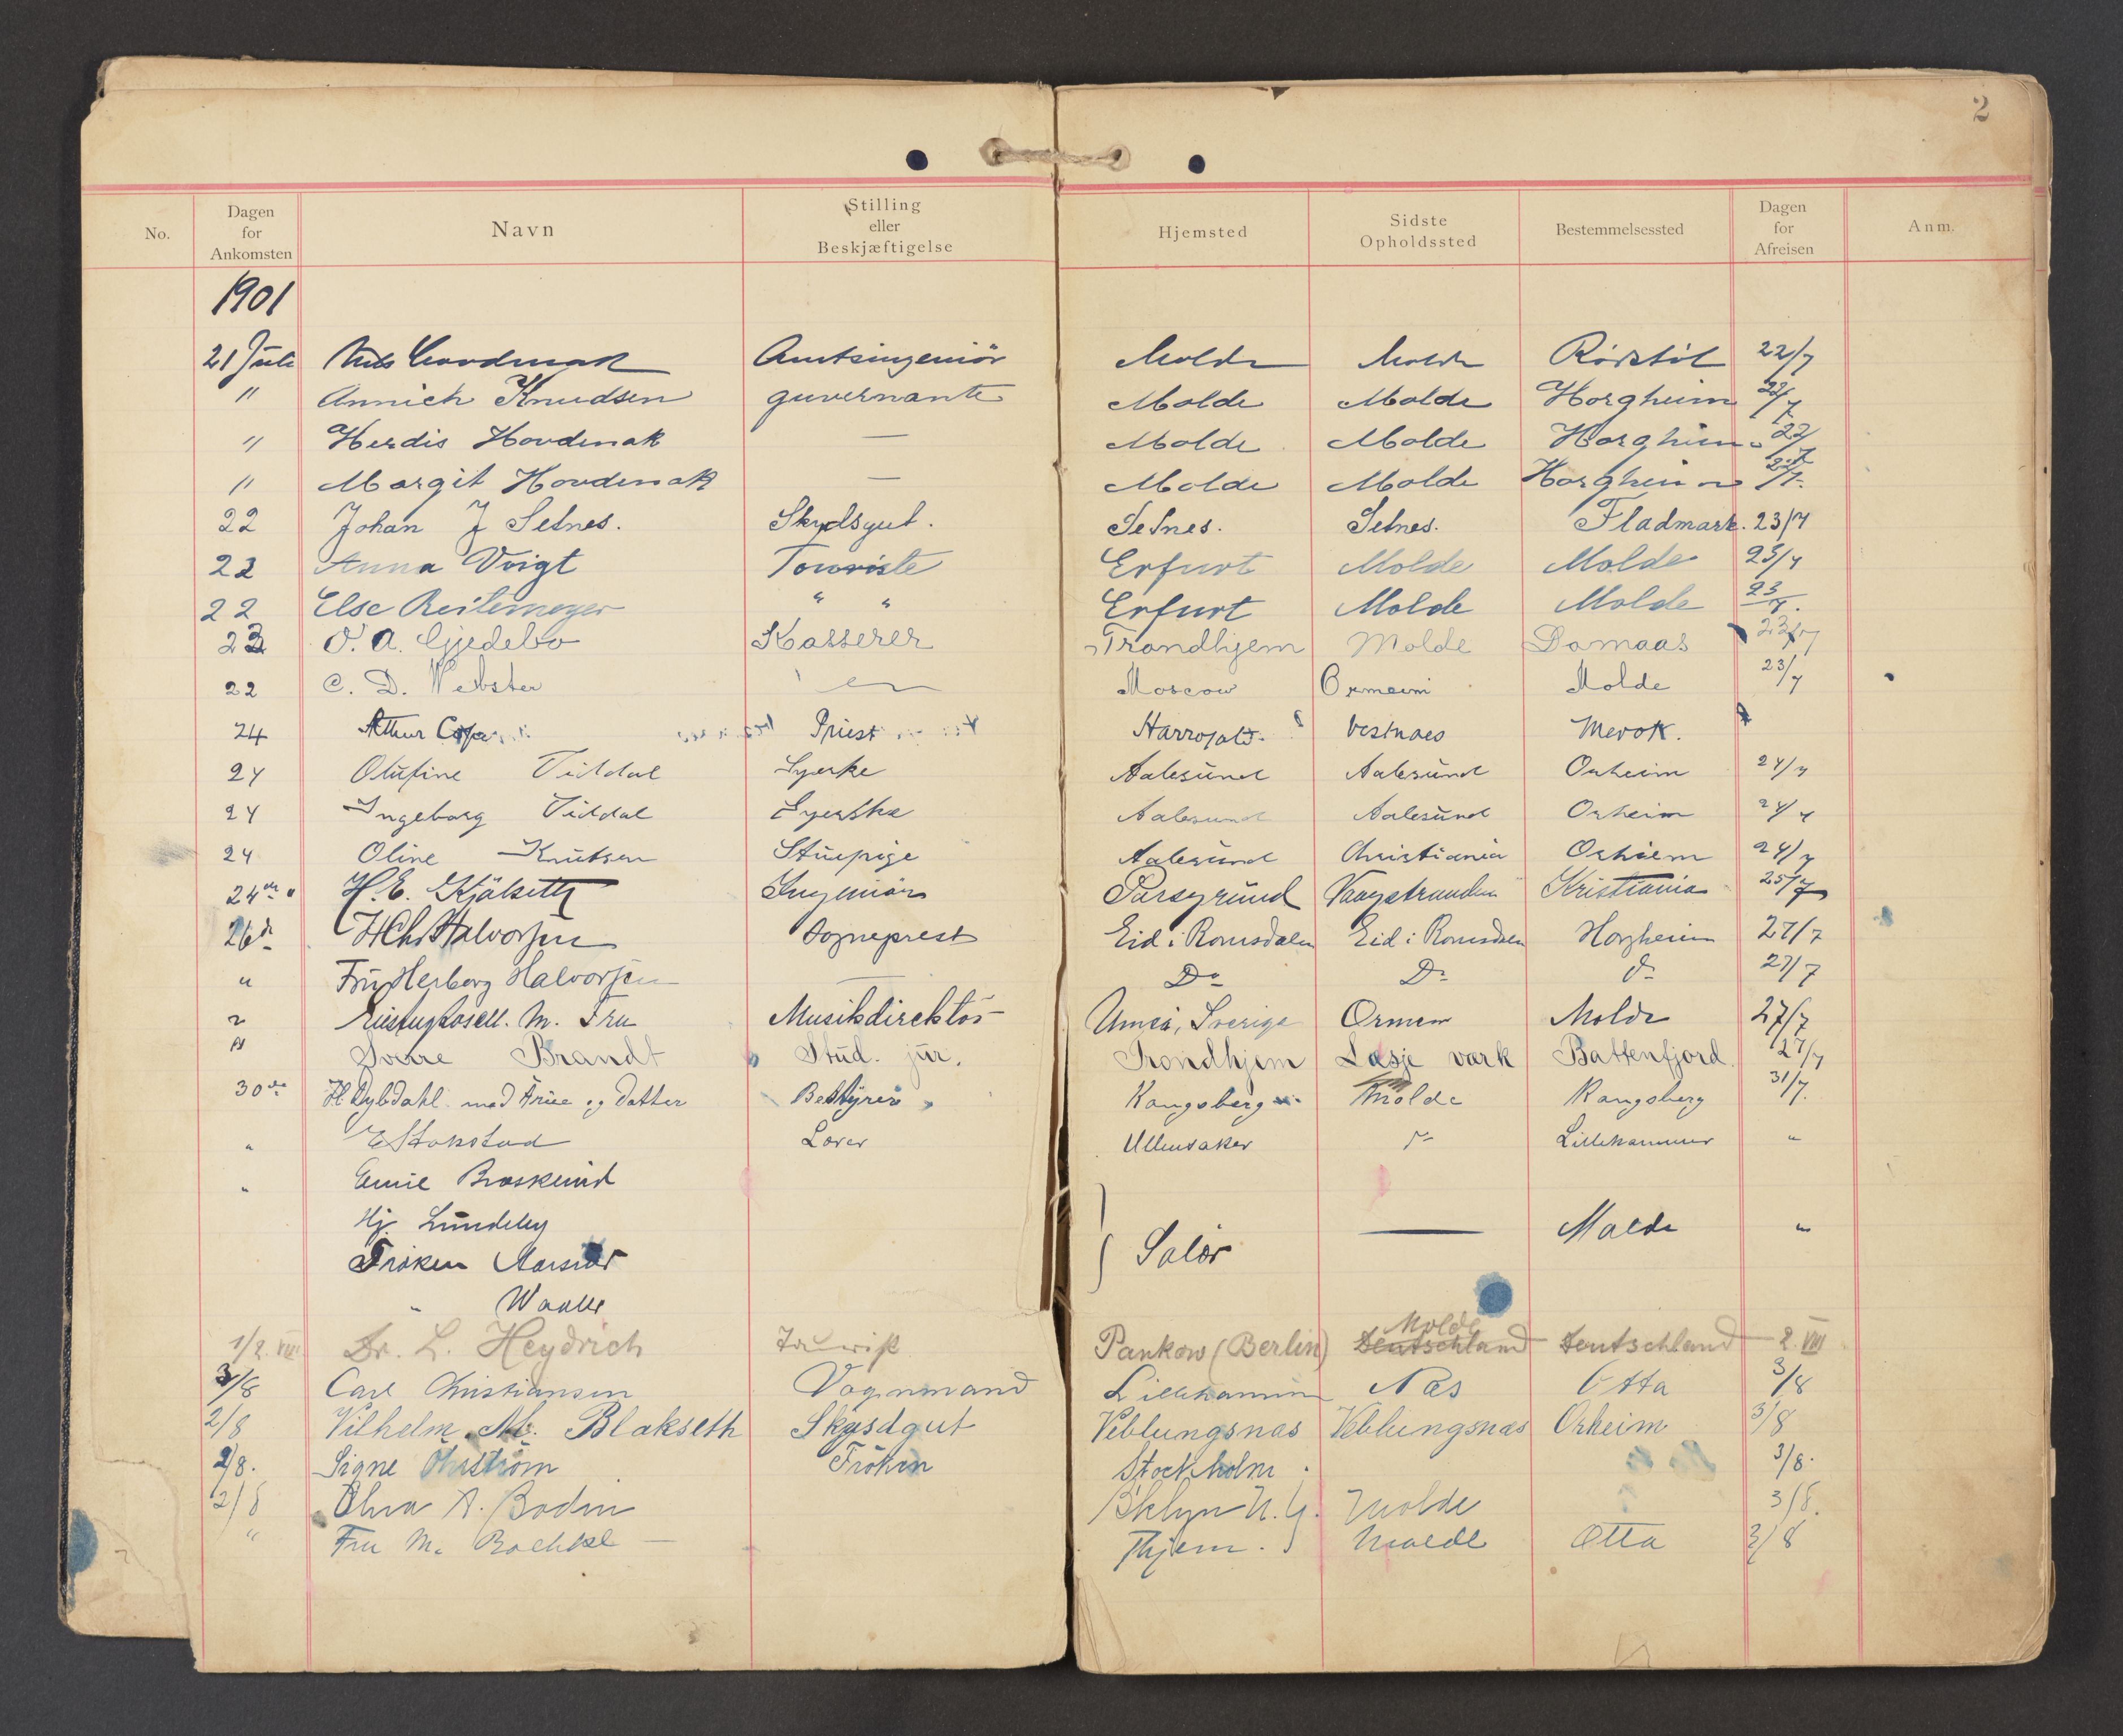 2
No. Dagen for Ankomsten Navn Stilling eller Beskjæftigelse Hjemsted Sidste Opholdssted Bestemmelsessted Dagen for Afreisen Anm.
1901
21 Juli Nils Hovdenak Amtsingeniör Molde Molde Rödstöl 22/7
" Annich Knudsen guvernante Molde Molde Horgheim 22/7
" Herdis Hovdenak — Molde Molde Horgheim 22/7
" Margit Hovdenak — Molde Molde Horgheim 22/7
22 Johan J Setnes. Skydsgut. Setnes. Setnes. Fladmark. 23/7
22 Anna Voigt Touriste Erfurt Molde Molde 23/7
22 Else Reitemeyer " " Erfurt Molde Molde 23/7.
22 O. A. Gjedebo Kasserer Trondhjem Molde Domaas 23/7
22 C. D. Webster Moscow Ormeim Molde 23/7
24 Arthur Priest Vestnaes Merok.
24 Olufine Viddal Syerke Aalesund Aalesund Orheim 24/7
24 Ingeborg Viddal Syerske Aalesund Aalesund Orheim 24/7
24 Oline Knutsen Stuepige Aalesund Christiania Orhiem 24/7
24de H. E. Kjölseth Ingeniör Porsgrund Vaagstranden Kristiania 25/7
26d H Chr Halvorsen Sogneprest Eid i Romsdalen Eid i Romsdalen Horgheim 27/7
" Fru Herborg Halvorsen — Do Do do 27/7
" M. Fru Musikdirektör Umeå, Sverige Ormem Molde 27/7
" Sverre Brandt Stud. jur. Trondhjem Lesje værk Battenfjord 27/7
30de H Dybdahl med Frue og Datter Bestyrer Kongsberg Molde Kongsberg 31/7.
" E Stokstad Lærer Ullensaker do Lillehammer "
" Emie Braskerud
Hj. Lundeby
Solör — Molde "
Fröken Aarsrud
" Waaler
1/2. VIII Dr. L. Heydrich Tourist Pankow (Berlin) Deutschland Molde Deutschland 2. VIII
3/8 Carl Christiansen Vognmand Lillehammer Næs Otta 3/8
2/8 Vilhelm M. Blakseth Skysdgut Veblungsnas Veblungsnas Orheim 3/8
2/8. Signe Öhrström Fröken Stockholm. 3/8.
2/8 A. Bodin B'klyn N.Y. Molde 3/8.
" Fru M. — Thjem. Molde Otta 3/8